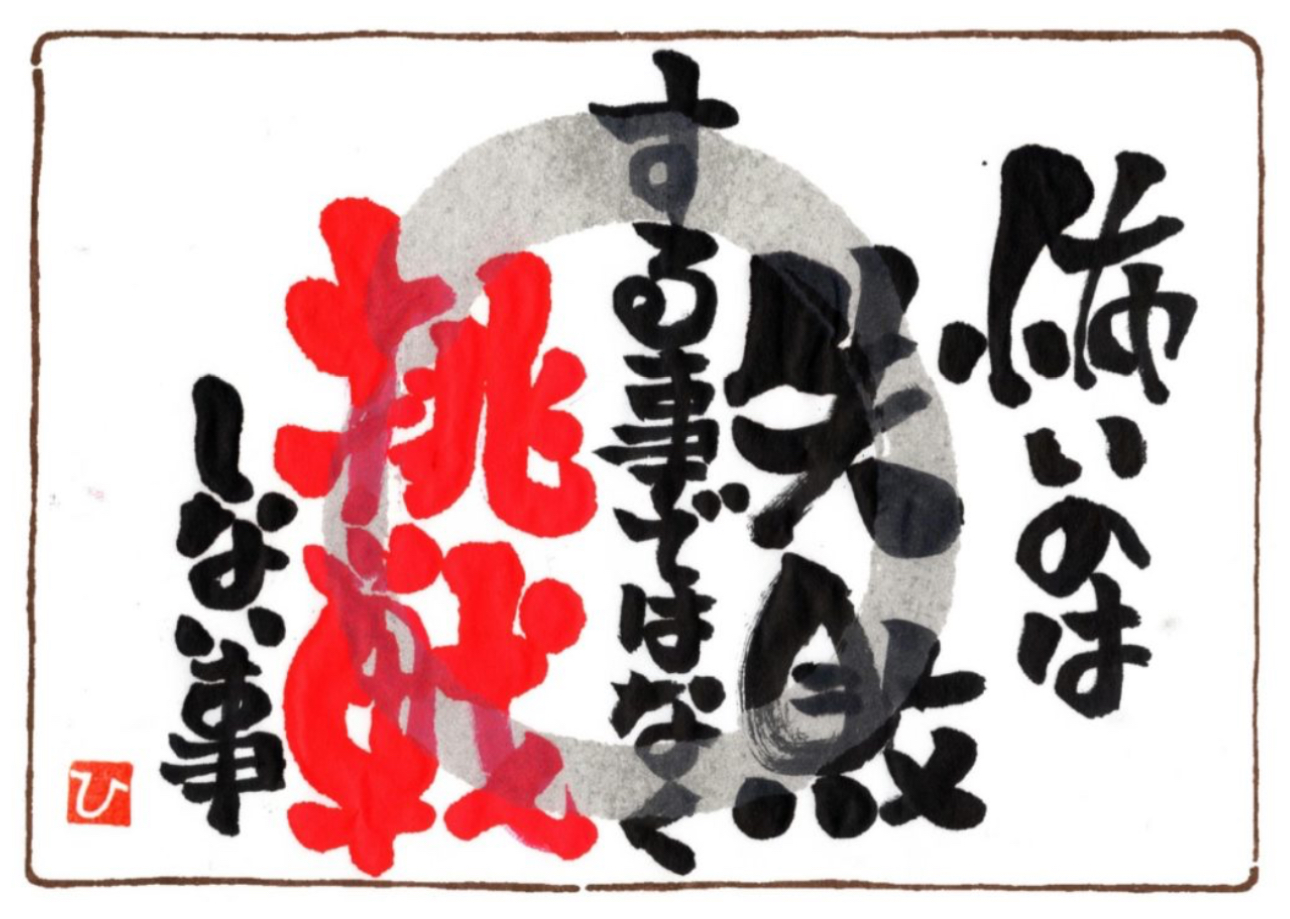 怖いのは
失敗
する事ではなく
挑戦
しない事
ひ